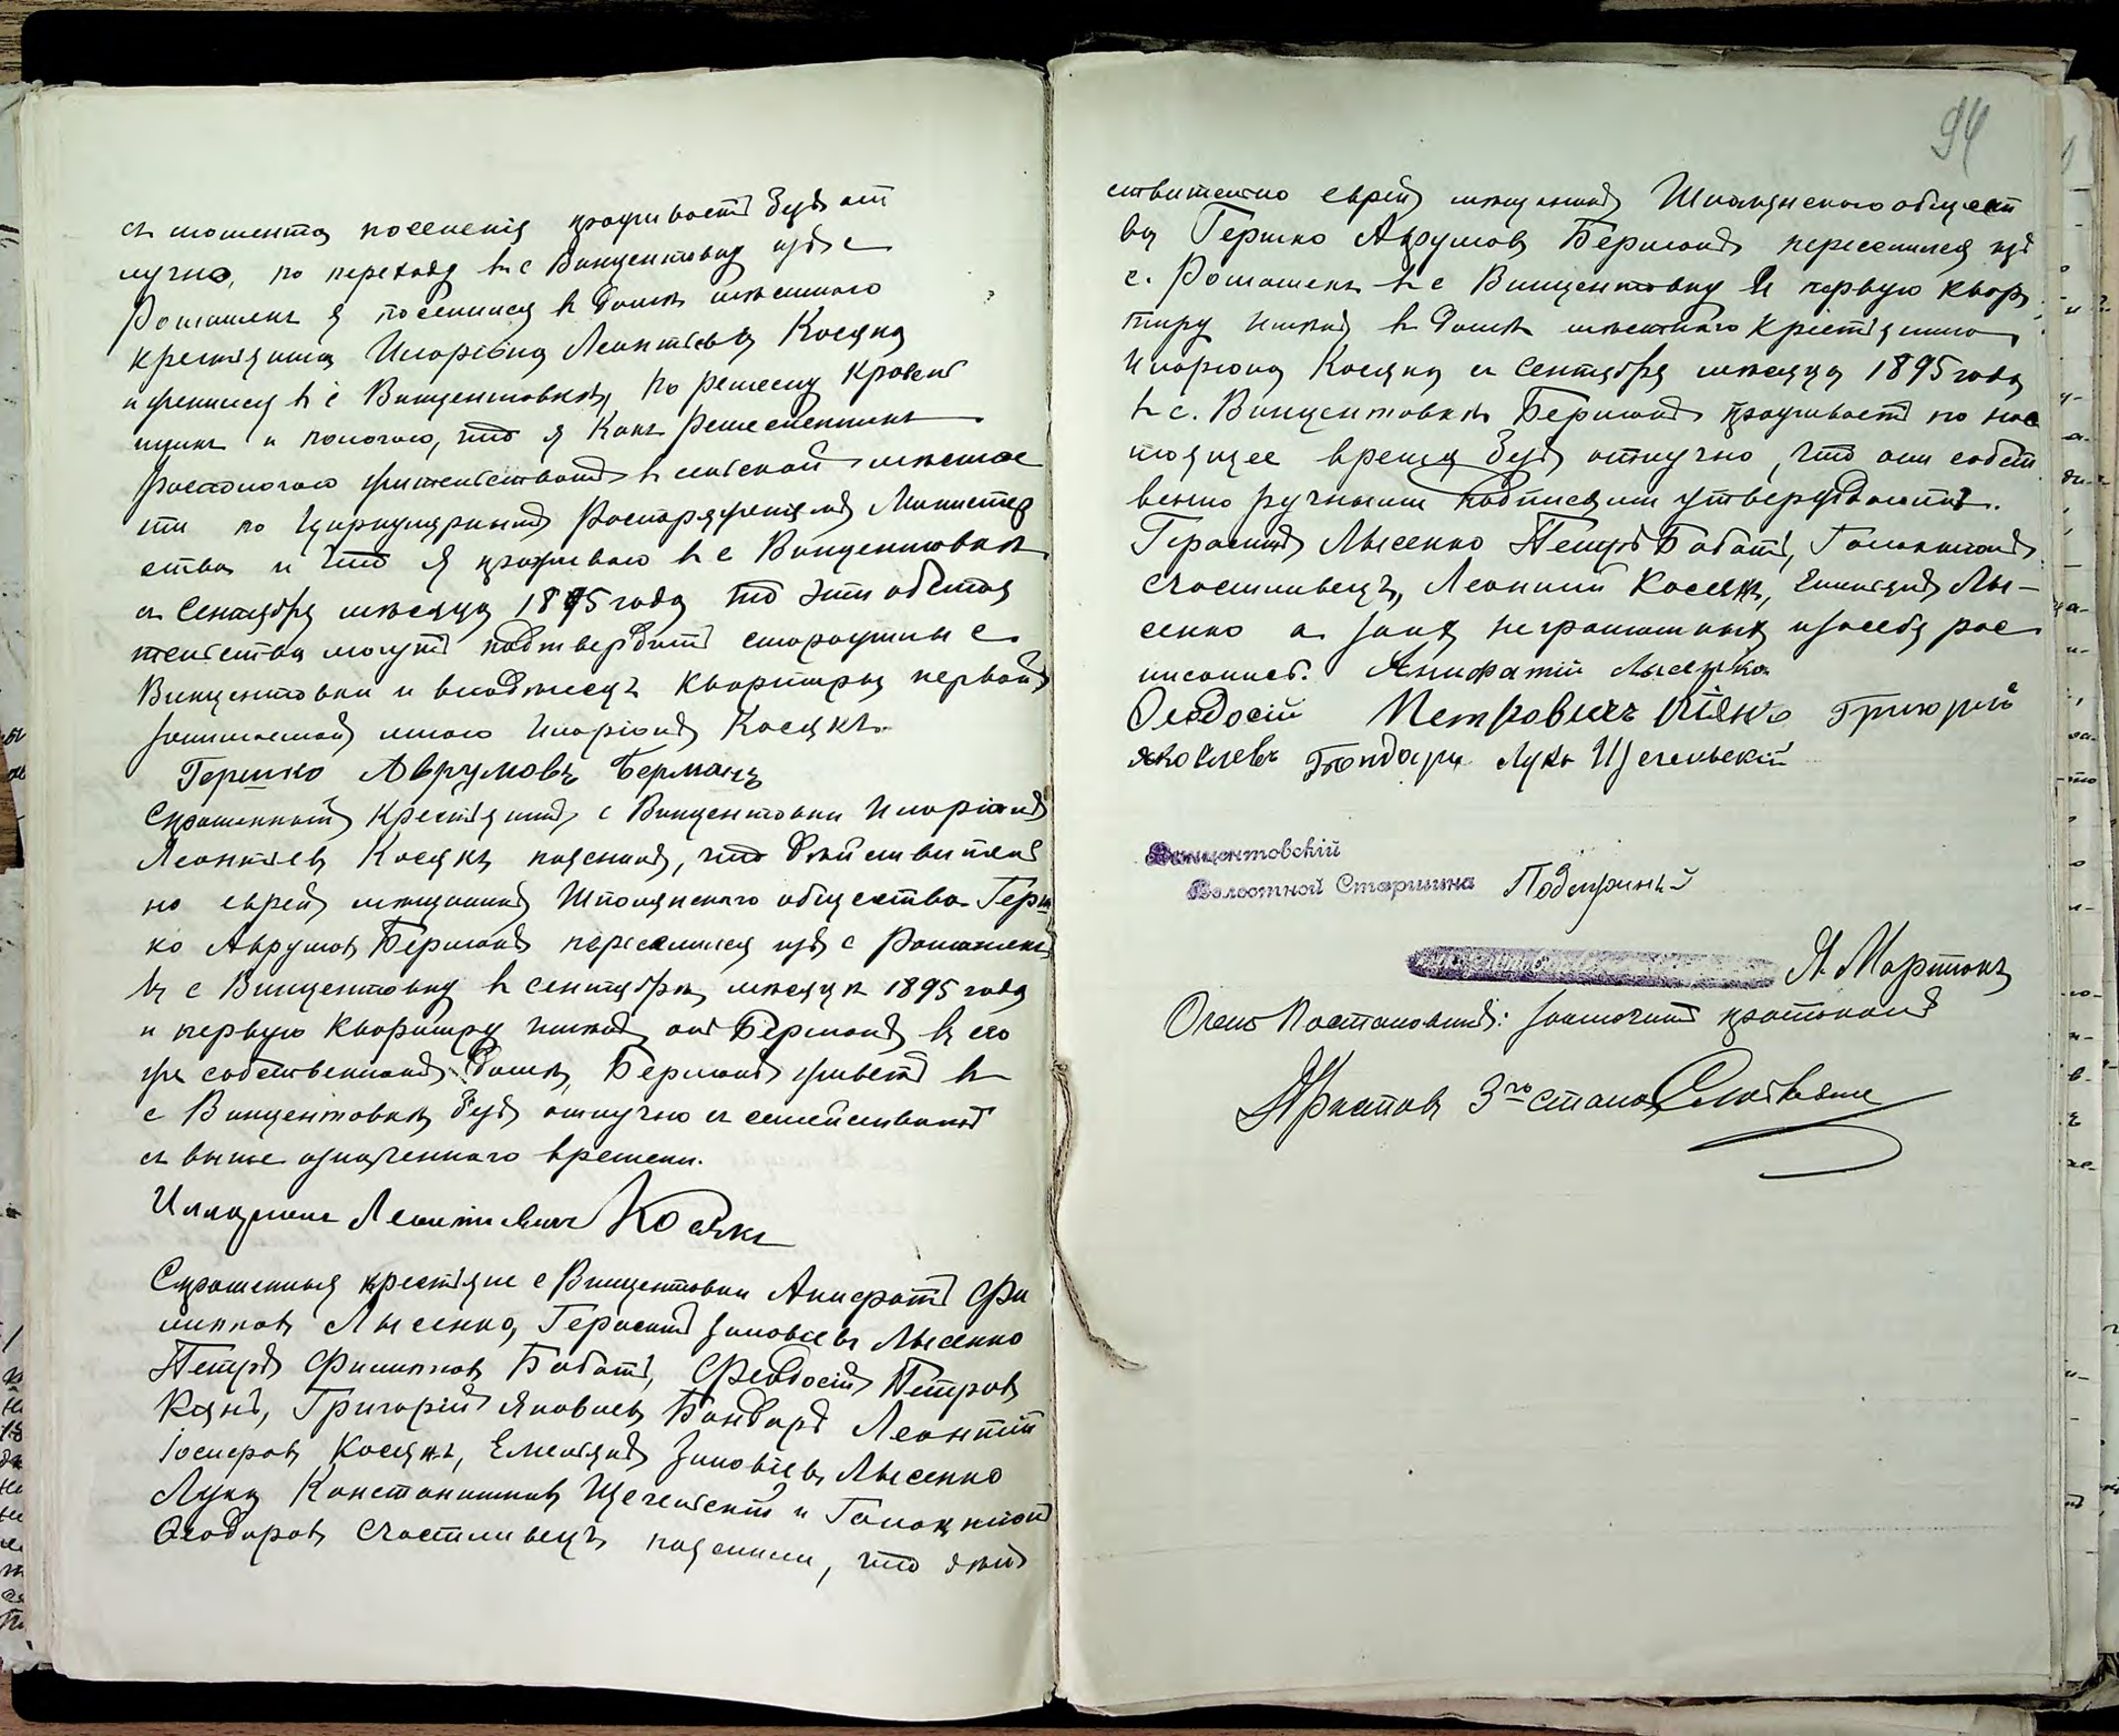 съ момента поселенія проживаетъ безъ от
лучно, по переходу въ с Винцентовку изъ с
Ротмашекъ я поселился въ домѣ мѣстнаго
крестьянина Иларіона Леонтьева Косяка
и числился въ с Винцентовкѣ, по ремеслу кровель
щикъ и полагаю, что я какъ ремесленникъ
располагаю жительствомъ въ сельской мѣстнос
ти по Циркулярнымъ распоряженіямъ Министер
ства и что я проживаю въ с Винцентовкѣ
съ Сентября мѣсяца 1895 года то эти обстоя
тельства могутъ подтвердить старожилы с
Винцентовки и владѣлецъ квартиры первой
занимаемой мною Иларіонъ Косякъ.
Гершко Аврумовъ Берманъ
Спрошенный крестьянинъ с Винцентовки Иларіонъ
Леонтіевъ Косякъ пояснилъ, что дѣйствитель
но еврей мѣщанинъ Шполянскаго общества Герш
ко Аврумовъ Берманъ переселился изъ с Ротмашекъ
въ с Винцентовку въ сентябрѣ мѣсяцѣ 1895 года
и первую квартиру имѣлъ онъ Берманъ въ его
же собственномъ домѣ, Берманъ живетъ въ
с Винцентовкѣ безъ отлучно съ семействомъ
съ выше означеннаго времени.
Иларионъ Леонтиевичъ Косякъ
Спрошенныя крестьяне с Винцентовки Анифатъ Фи
липповъ Лысенко, Герасимъ Зиновіевъ Лысенко
Петръ Филипповъ Бабатъ, Феодосій Петровъ
Кянъ, Григорій Яковлевъ Бондарь Леонтій
Іосифовъ Косякъ, Емельянъ Зиновіевъ Лысенко
Лука Константиновъ Щегельскій и Галактіонъ
Ѳеодоровъ Счастливецъ пояснили, что дѣй
94
ствительно еврей мѣщанинъ Шполянскаго общест
ва Гершко Аврумовъ Берманъ переселился изъ
с. Ротмашекъ въ с Винцентовку и первую квар
тиру имѣлъ въ домѣ мѣстнаго крестьянина
Иларіона Косяка съ Сентября мѣсяца 1895 года
въ с. Винцентовкѣ Берманъ проживаетъ по нас
тоящее время безъ отлучно, что они собст
венно ручными подписями утверждаютъ.
Герасимъ Лысенко Петръ Бабатъ, Галактіонъ
Счастливецъ, Леонтій Косякъ, Емельянъ Лы-
сенко а за нихъ неграмотныхъ и за себя рос
писался. Анифатій Лысенко
Ѳеодосій Петровичъ Кіянъ Григорій
Яковлевъ Бондарь Лука Щегельскій
Винцентовскій
Волостной Старшина
А. Мартонъ
Опросъ Постановилъ: заключить протоколъ
Приставъ 3го стана